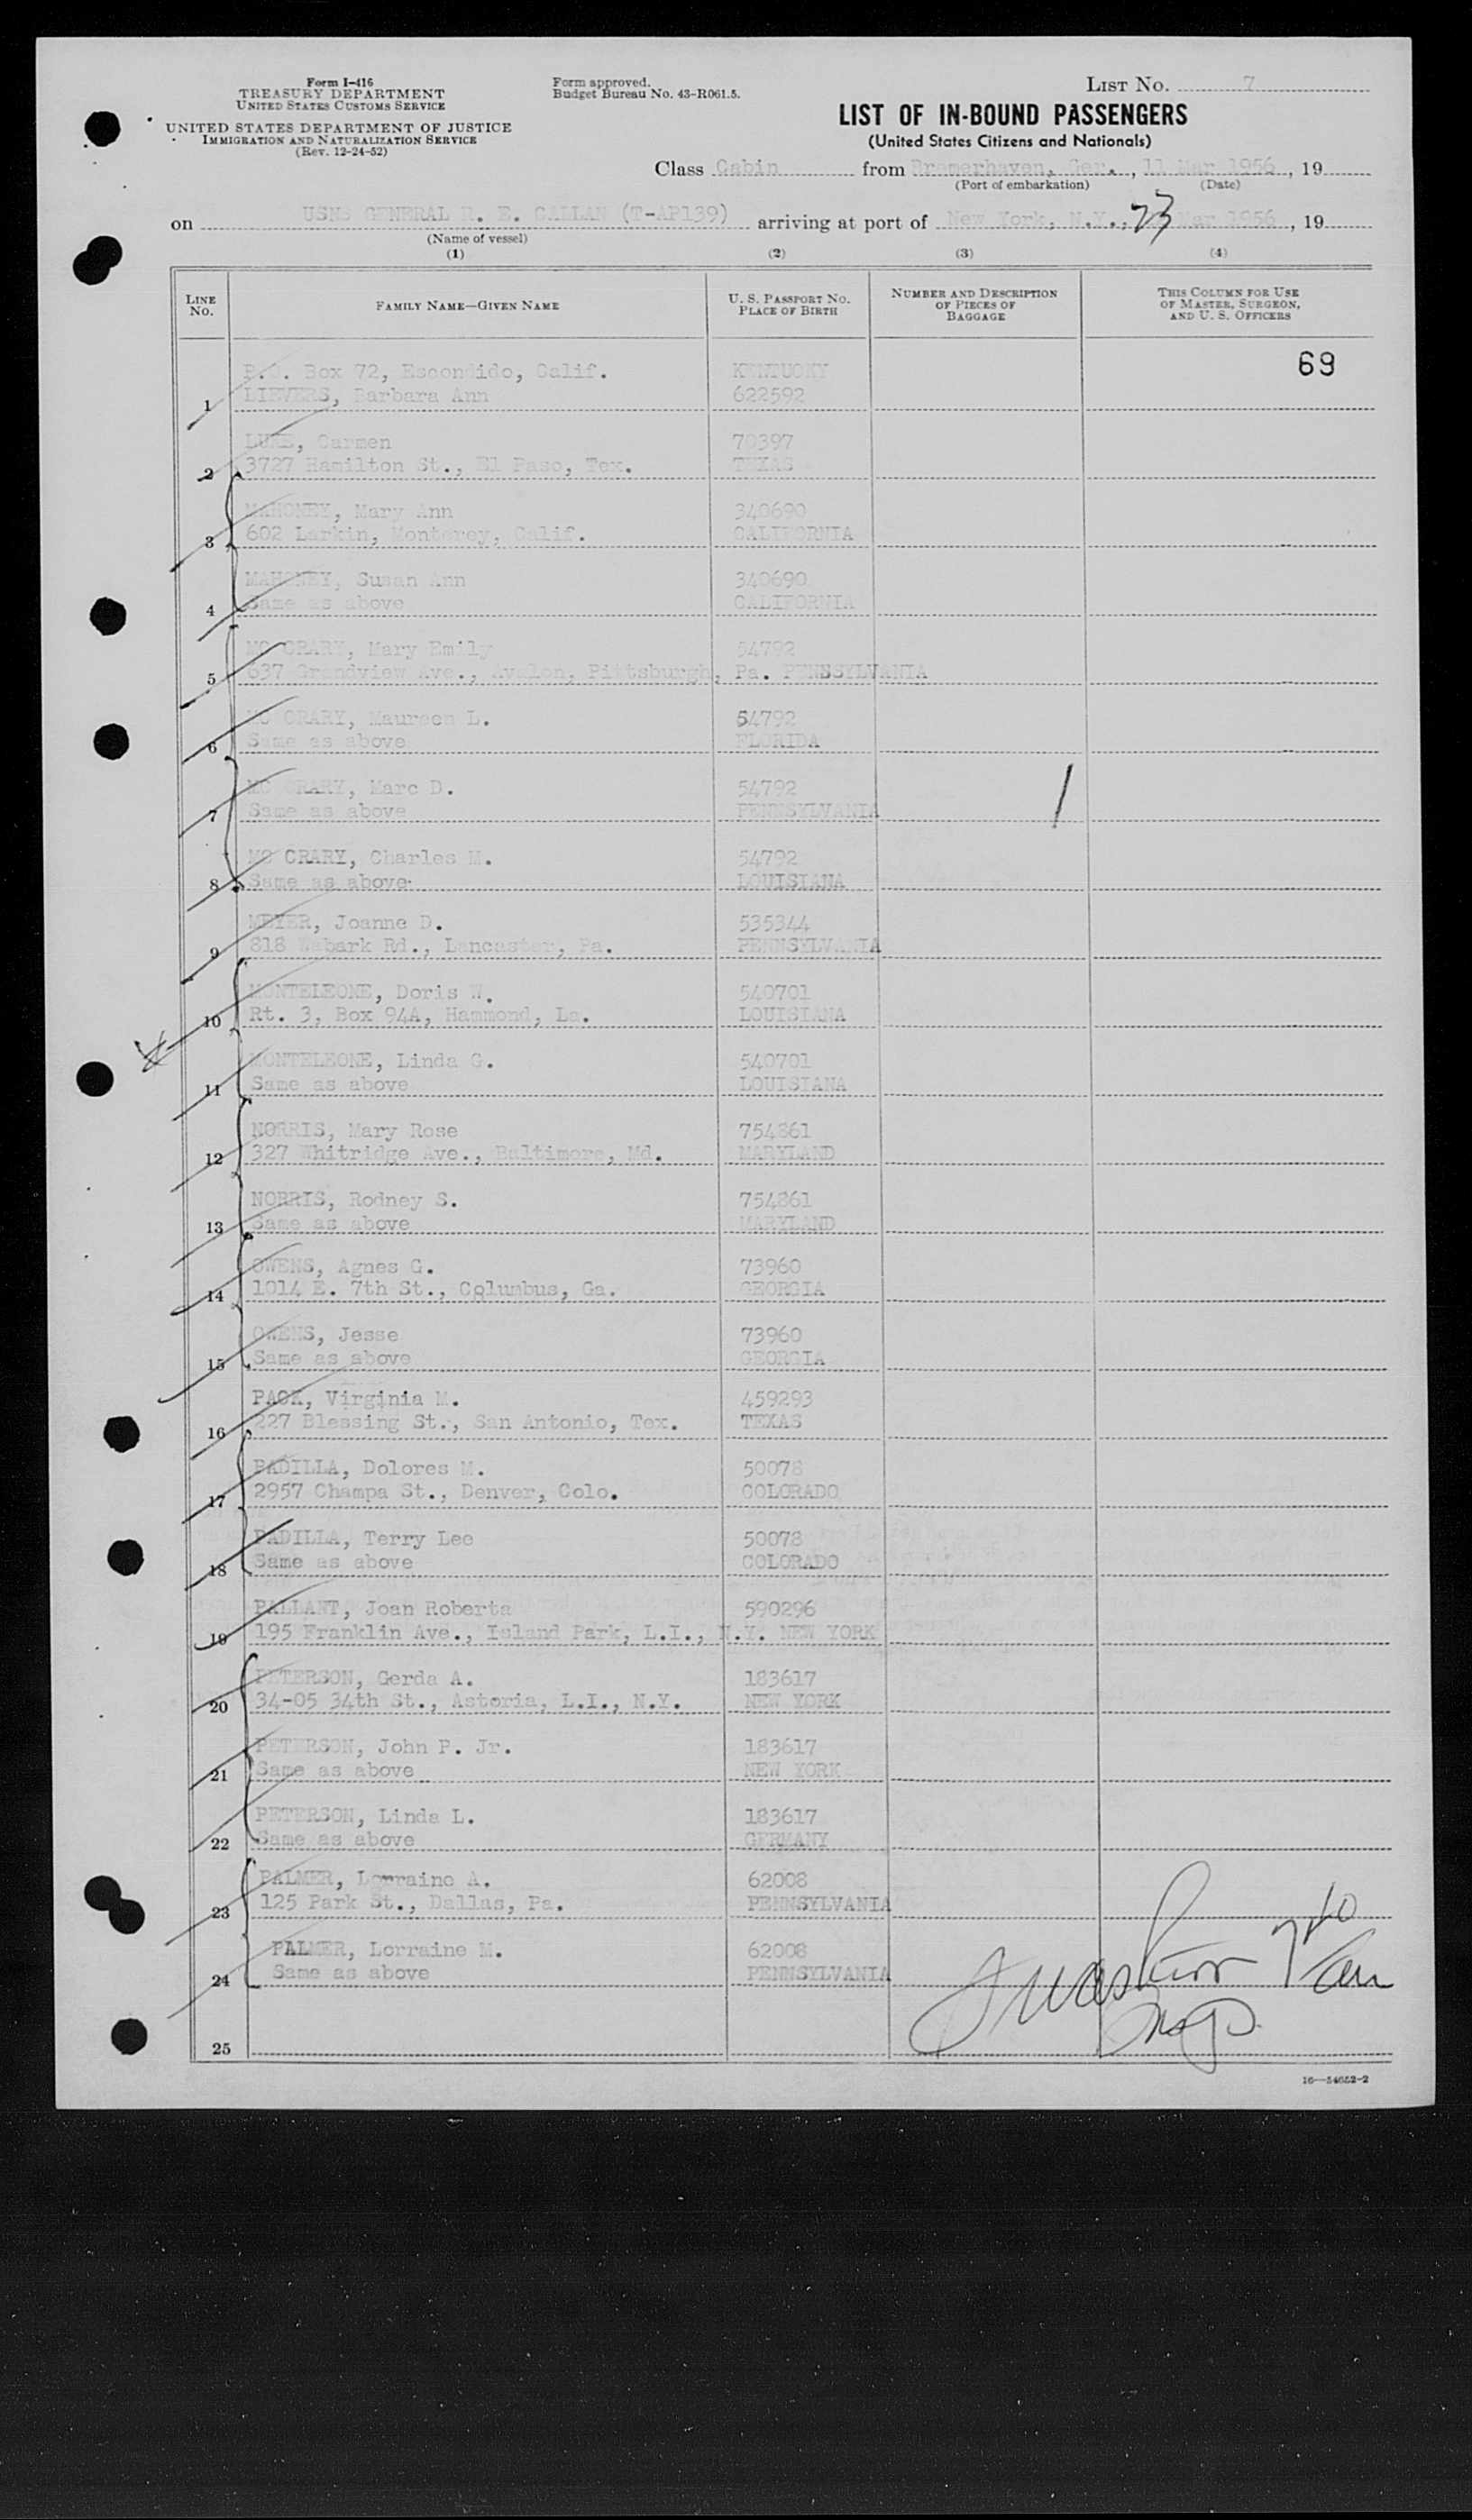 Form I-416
TREASURY DEPARTMENT
UNITED STATES CUSTOMS SERVICE
UNITED STATES DEPARTMENT OF JUSTICE
IMMIGRATION AND NATURALIZATION SERVICE
(Rev. 12-24-52)
Form approved.
Budget Bureau No. 43-R061.5.
LIST No. 7
LIST OF IN-BOUND PASSENGERS
(United States Citizens and Nationals)
Class Cabin from Bremerhaven, Ger., 11 Mar 1956, 19
(Port of embarkation) (Date)
on USNS GENERAL R. E. CALLAN (T-AP139) arriving at port of New York, N.Y., 23 Mar 1956, 19
(Name of vessel)
(1) (2) (3) (4)
LINE No. FAMILY NAME—GIVEN NAME U. S. PASSPORT NO. PLACE OF BIRTH NUMBER AND DESCRIPTION OF PIECES OF BAGGAGE THIS COLUMN FOR USE OF MASTER, SURGEON, AND U. S. OFFICERS
69
P.O. Box 72, Escondido, Calif. KENTUCKY
1 LIEVERS, Barbara Ann 622592
LUNE, Carmen 70397
2 3727 Hamilton St., El Paso, Tex. TEXAS
MAHONEY, Mary Ann 340690
3 602 Larkin, Monterey, Calif. CALIFORNIA
MAHONEY, Susan Ann 340690
4 Same as above CALIFORNIA
MC CRARY, Mary Emily 54792
5 637 Grandview Ave., Avalon, Pittsburgh, Pa. PENNSSYLVANIA
MC CRARY, Maureen L. 54792
6 Same as above FLORIDA
MC CRARY, Marc D. 54792
7 Same as above PENNSYLVANIA
MC CRARY, Charles M. 54792
8 Same as above LOUISIANA
MEYER, Joanne D. 535344
9 818 Wabark Rd., Lancaster, Pa. PENNSYLVANIA
MONTELEONE, Doris W. 540701
10 Rt. 3, Box 94A, Hammond, La. LOUISIANA
MONTELEONE, Linda G. 540701
11 Same as above LOUISIANA
NORRIS, Mary Rose 754861
12 327 Whitridge Ave., Baltimore, Md. MARYLAND
NORRIS, Rodney S. 754861
13 Same as above MARYLAND
OWENS, Agnes G. 73960
14 1014 E. 7th St., Columbus, Ga. GEORGIA
OWENS, Jesse 73960
15 Same as above GEORGIA
PACK, Virginia M. 459293
16 227 Blessing St., San Antonio, Tex. TEXAS
PADILLA, Dolores M. 50078
17 2957 Champa St., Denver, Colo. COLORADO
PADILLA, Terry Lee 50078
18 Same as above COLORADO
PALLANT, Joan Roberta 590296
19 195 Franklin Ave., Island Park, L.I., N.Y. NEW YORK
PETERSON, Gerda A. 183617
20 34-05 34th St., Astoria, L.I., N.Y. NEW YORK
PETERSON, John P. Jr. 183617
21 Same as above NEW YORK
PETERSON, Linda L. 183617
22 Same as above GERMANY
PALMER, Lorraine A. 62008
23 125 Park St., Dallas, Pa. PENNSYLVANIA
PALMER, Lorraine M. 62008
24 Same as above PENNSYLVANIA
25
16—54652-2